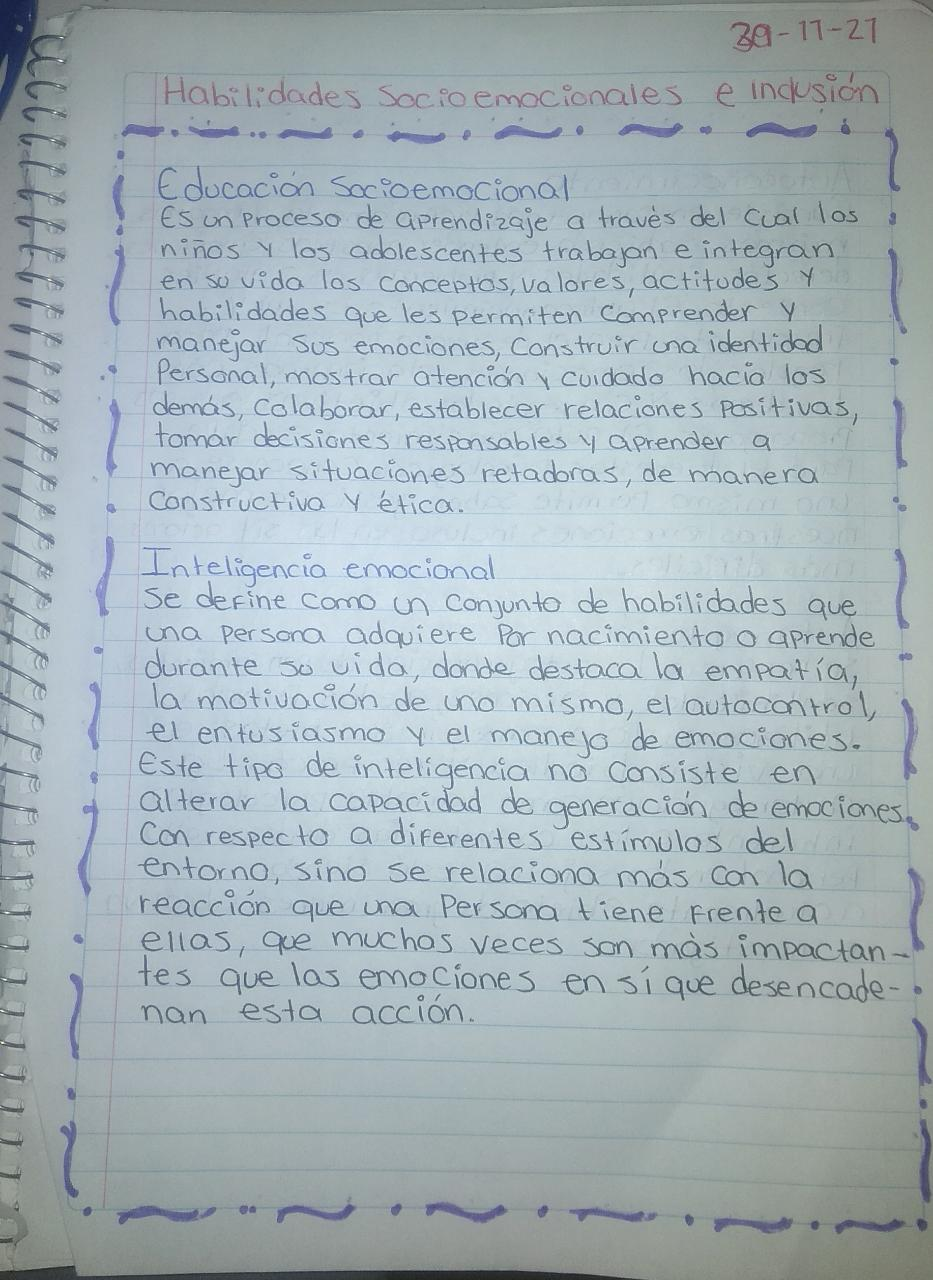 30-11-21
Habilidades Socioemocionales e inclusión
Educación Socioemocional
Es un proceso de aprendizaje a través del cual los
niños y los adolescentes trabajan e integran
en su vida los conceptos, valores, actitudes y
habilidades que les permiten comprender y
manejar sus emociones, construir una identidad
Personal, mostrar atención y cuidado hacia los
demás, colaborar, establecer relaciones positivas,
tomar decisiones responsables y aprender a
manejar situaciones retadoras, de manera
constructiva y ética.
Inteligencia emocional
Se define como un conjunto de habilidades que
una persona adquiere por nacimiento o aprende
durante su vida, donde destaca la empatía,
la motivación de uno mismo, el autocontrol,
el entusiasmo y el manejo de emociones.
Este tipo de inteligencia no consiste en
alterar la capacidad de generación de emociones
con respecto a diferentes estímulos del
entorno, sino se relaciona más con la
reacción que una persona tiene frente a
ellas, que muchas veces son más impactan-
tes que las emociones en sí que desencade-
nan esta acción.